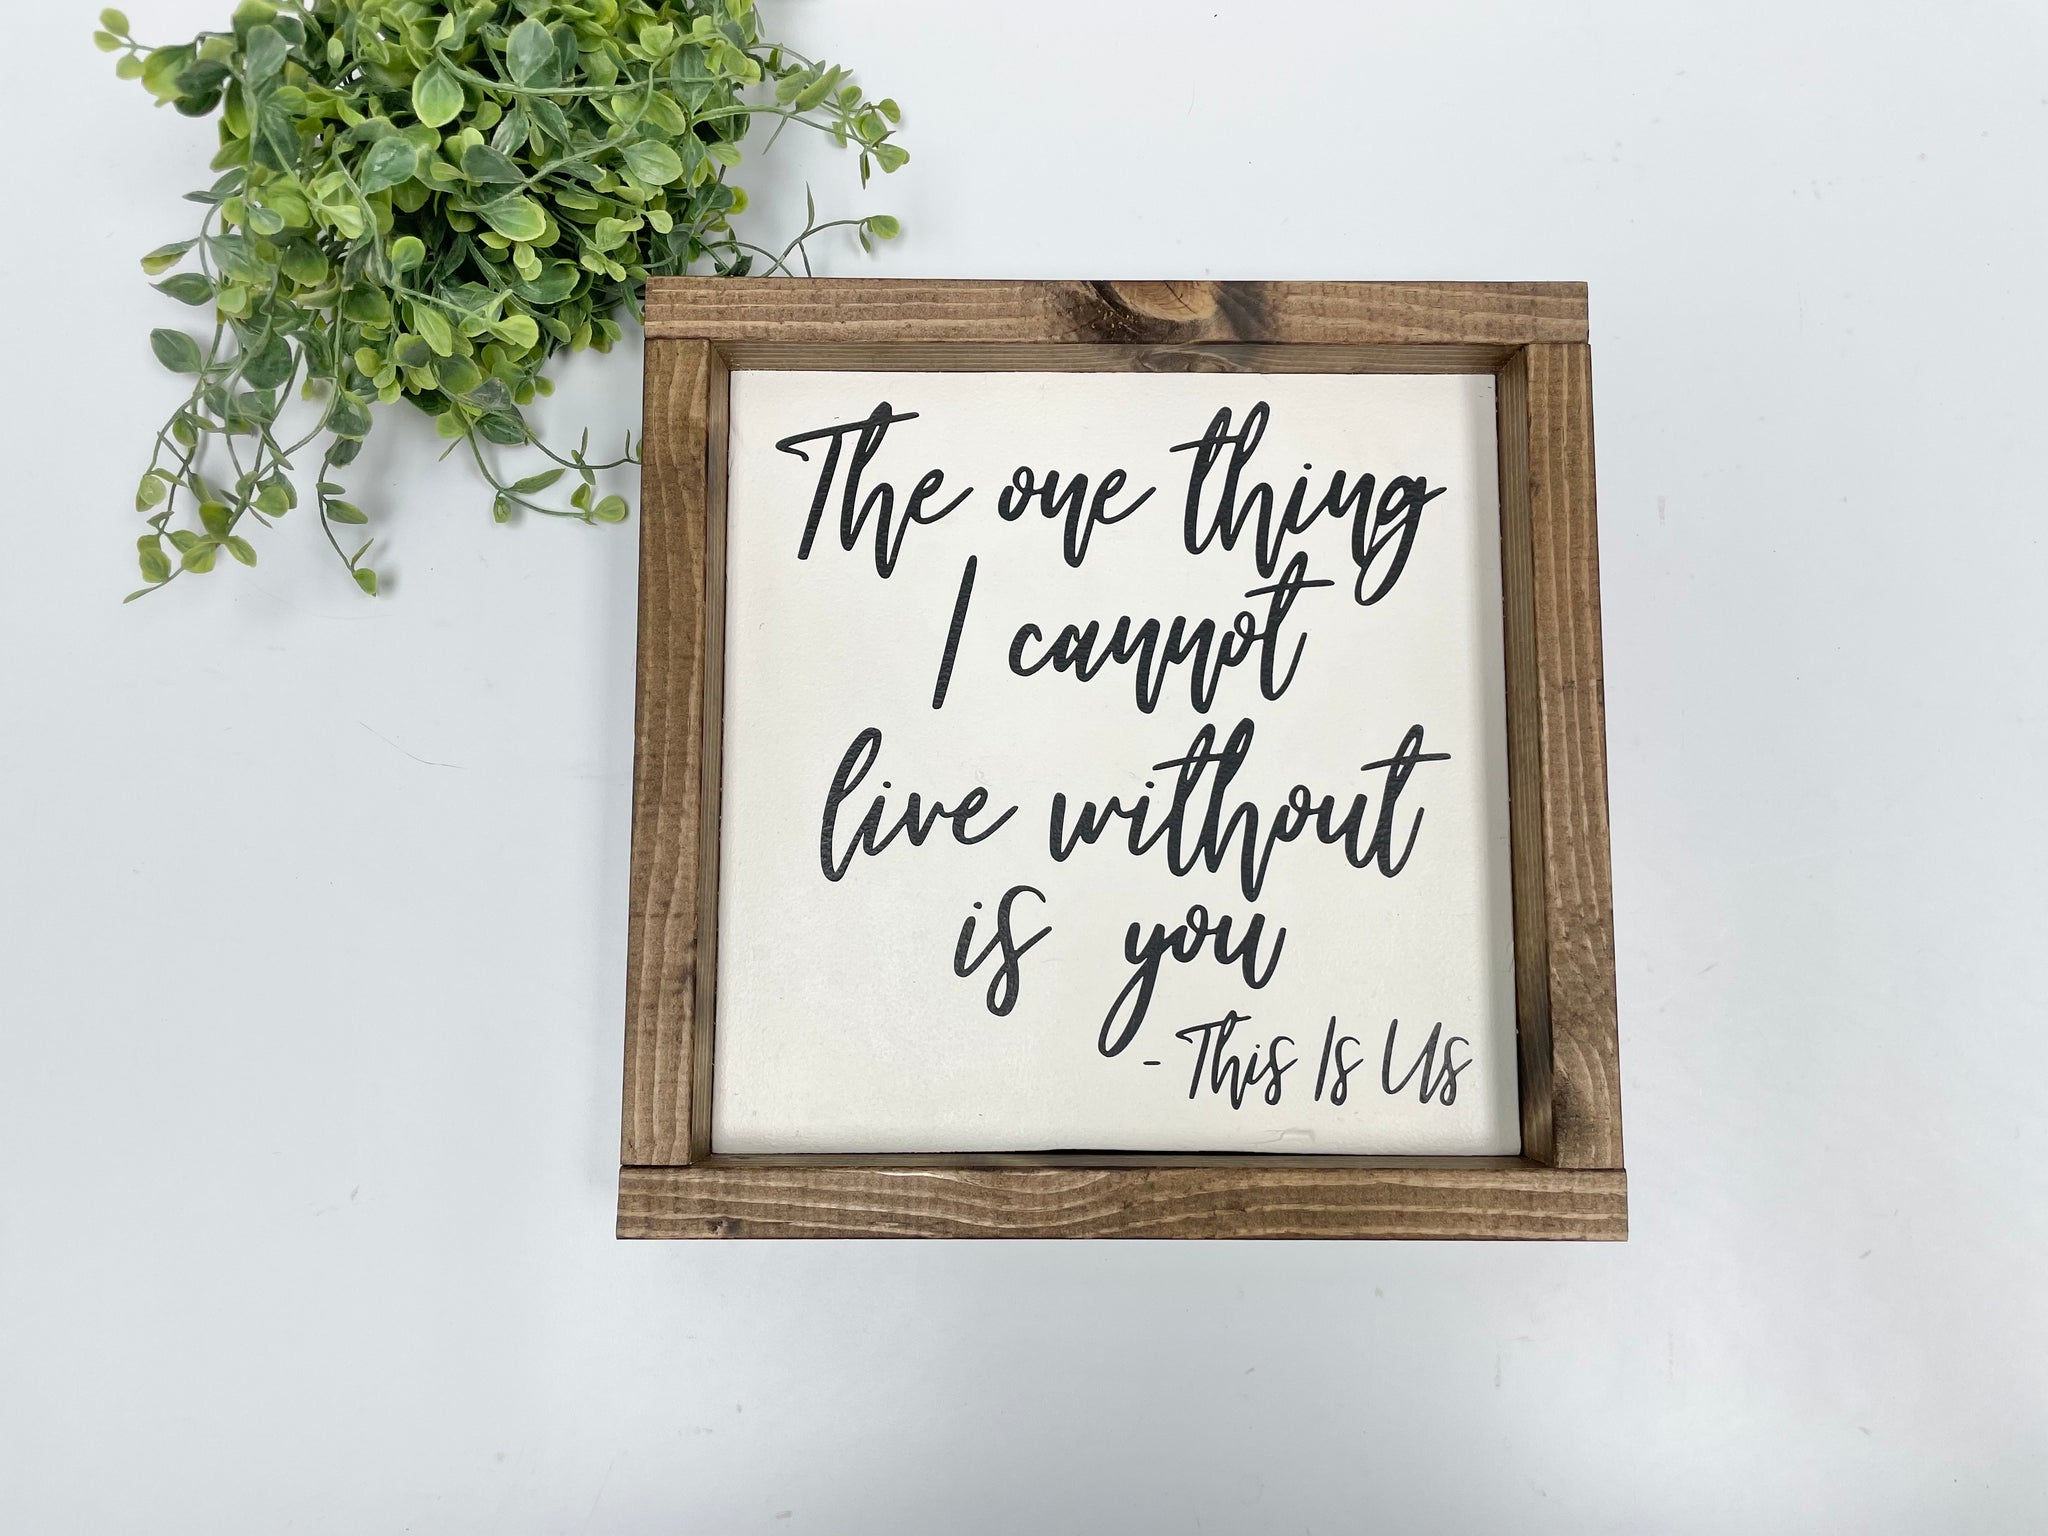 The one thing
I cannot
live without
is you
- This Is Us